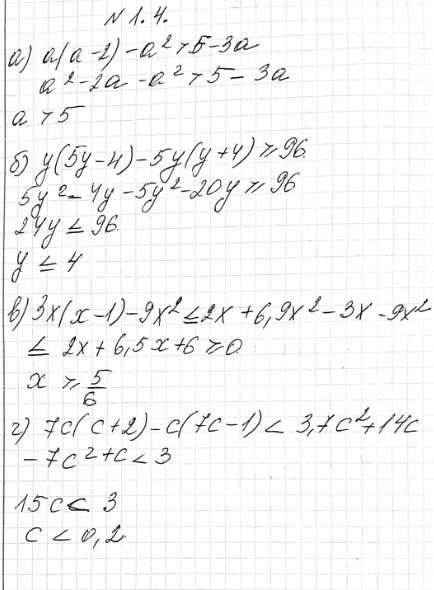 N 1.4.
а) a(a-2)-a²>5-3a
a²-2a-a²>5-3a
a>5
б) y(5y-4)-5y(y+4)≥96
5y²-4y-5y²-20y≥96
24y≤96
y≤4
в) 3x(x-1)-9x²≤2x+6,9x²-3x-9x²
≤ 2x+6,5x+6≥0
x ≥ 5/6
г) 7c(c+2)-c(7c-1)<3,7c²+14c
-7c²+c<3
15c<3
c<0,2